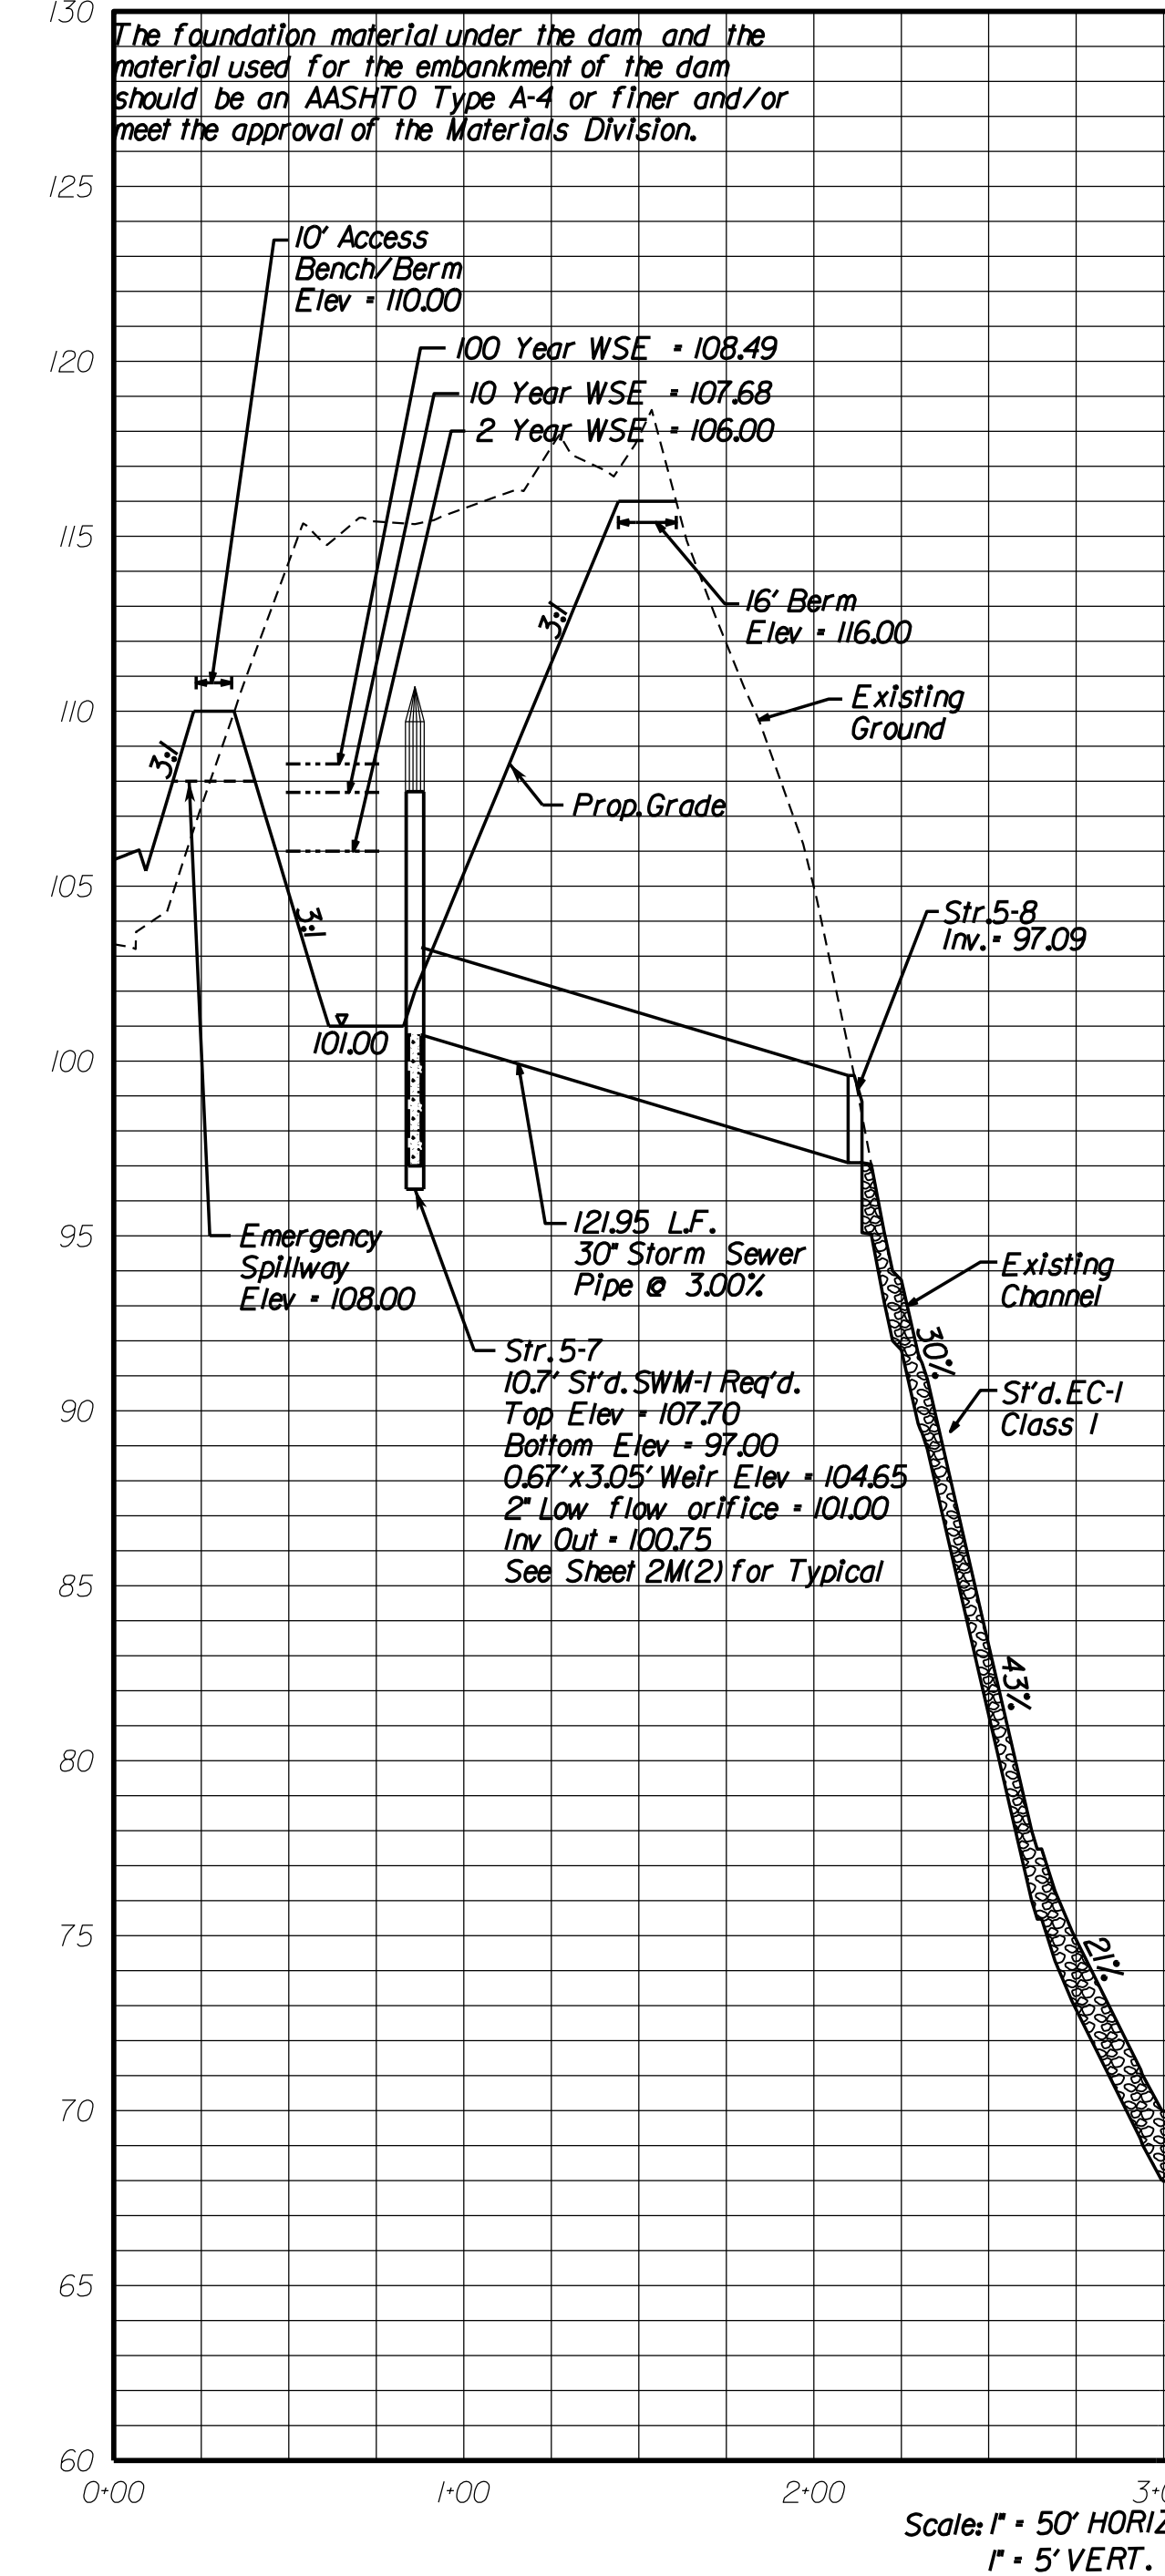 130
The foundation material under the dam and the
material used for the embankment of the dam
should be an AASHTO Type A-4 or finer and/or
meet the approval of the Materials Division.
125
10' Access
Bench/Berm
Elev = 110.00
100 Year WSE = 108.49
120
10 Year WSE = 107.68
2 Year WSE = 106.00
115
16' Berm
Elev = 116.00
3:1
Existing
Ground
110
3:1
Prop. Grade
105
3:1
Str. 5-8
Inv. = 97.09
101.00
100
95
Emergency
Spillway
Elev = 108.00
121.95 L.F.
30" Storm Sewer
Pipe @ 3.00%
Existing
Channel
30%
Str. 5-7
10.7' St'd. SWM-1 Req'd.
Top Elev = 107.70
Bottom Elev = 97.00
0.67' x 3.05' Weir Elev = 104.65
2" Low flow orifice = 101.00
Inv Out = 100.75
See Sheet 2M(2) for Typical
St'd. EC-1
Class 1
90
85
43%
80
75
21%
70
65
60
0+00 1+00 2+00
Scale: 1" = 50' HORIZ
1" = 5' VERT.